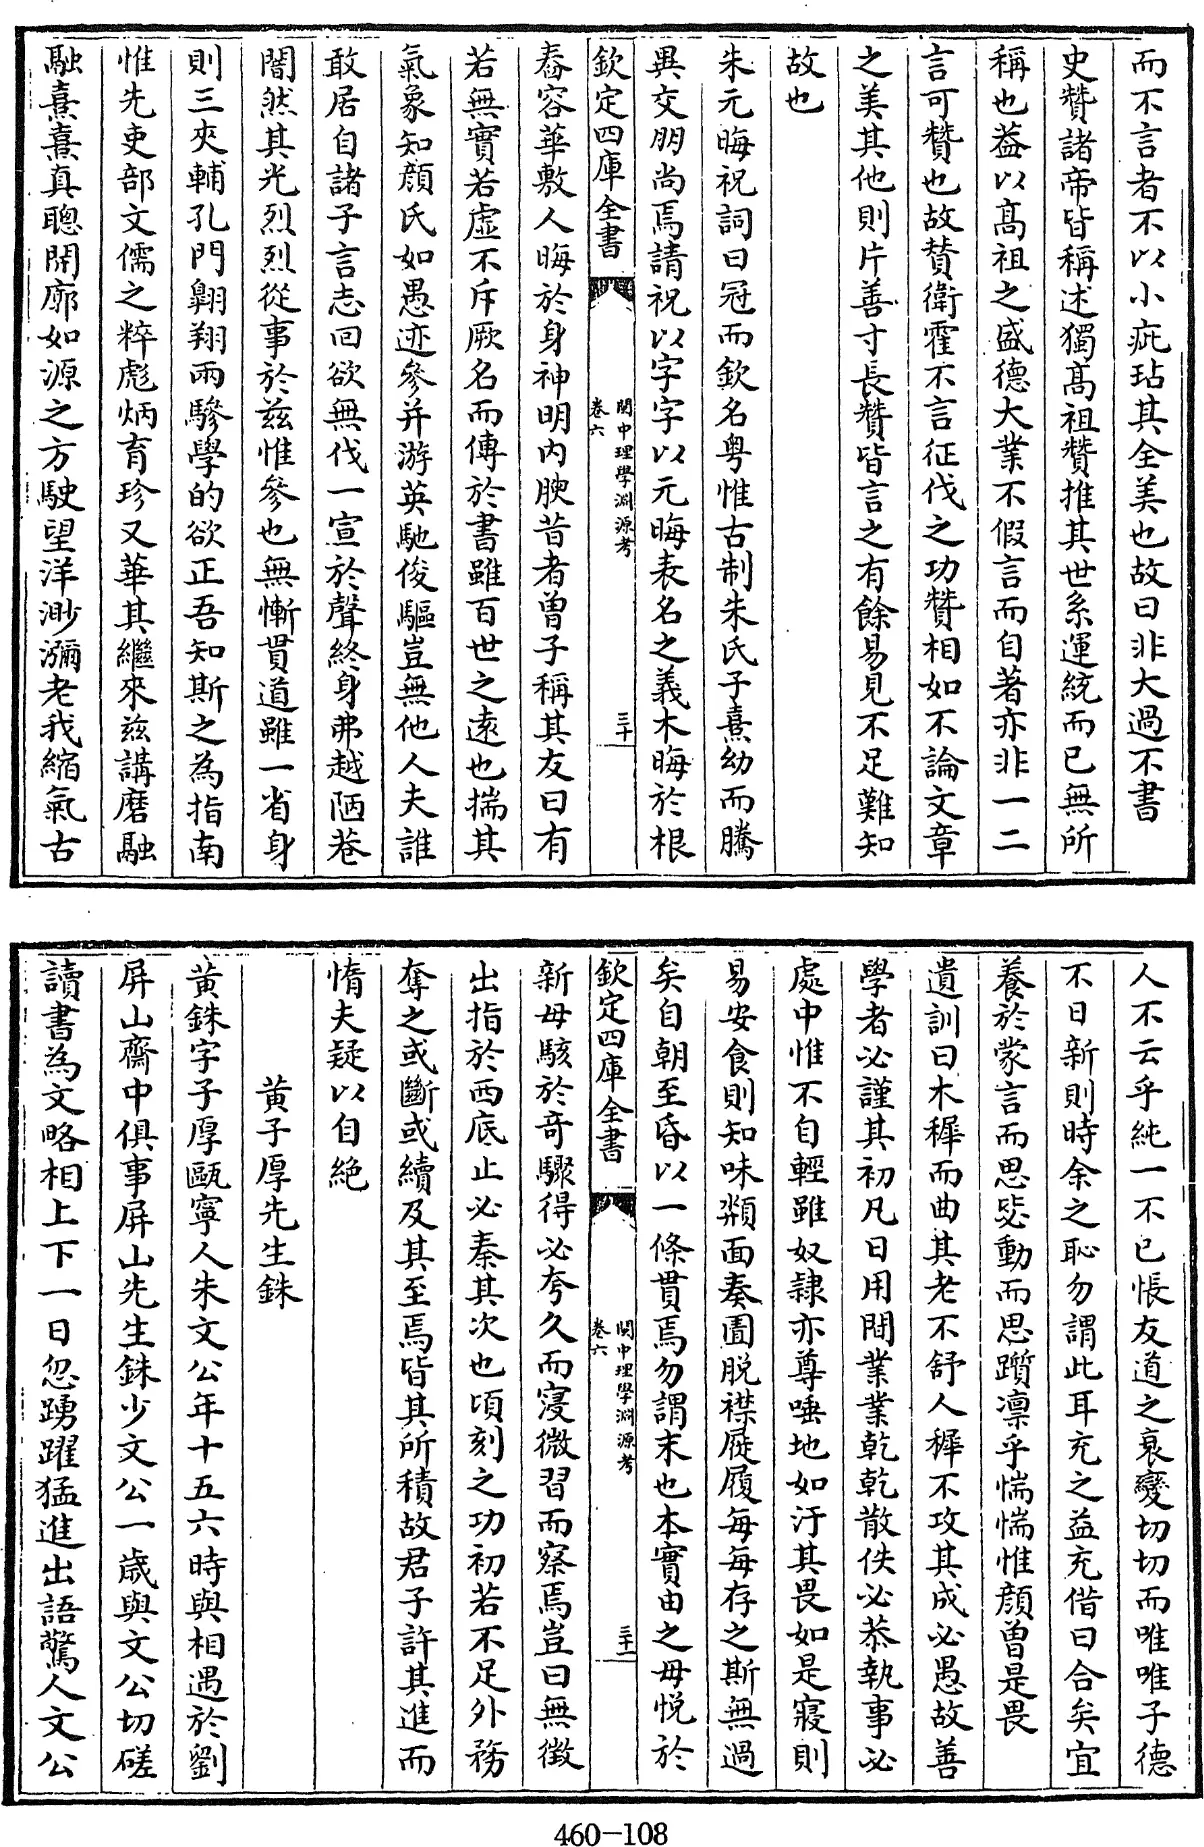 而不言者不以小疵玷其全美也故曰非大過不書
史贊諸帝皆稱述獨髙祖贊推其世系運統而已無所
稱也葢以髙祖之盛德大業不假言而自著亦非一二
言可贊也故賛衛霍不言征伐之功贊相如不論文章
之美其他則片善寸長贊皆言之有餘易見不足難知
故也
朱元晦祝詞曰冠而欽名粤惟古制朱氏子熹幼而騰
異交朋尚焉請祝以字字以元晦表名之義木晦於根
欽定四庫全書
閩中理學淵源考
卷六
三十
春容華敷人晦於身神明内腴昔者曾子稱其友曰有
若無實若虚不斥厥名而傳於書雖百世之遠也揣其
氣象知顔氏如愚迹參并游英馳俊驅豈無他人夫誰
敢居自諸子言志回欲無伐一宣於聲終身弗越陋巷
闇然其光烈烈從事於兹惟參也無慚貫道雖一省身
則三夾輔孔門翺翔兩驂學的欲正吾知斯之為指南
惟先吏部文儒之粹彪炳育珍又華其繼來兹講磨融
融熹熹真聰開廓如源之方駛望洋渺瀰老我縮氣古
人不云乎純一不已悵友道之衰變切切而唯唯子德
不日新則時余之恥勿謂此耳充之益充借曰合矣宜
養於蒙言而思毖動而思躓凛乎惴惴惟顔曾是畏
遺訓曰木穉而曲其老不舒人穉不攻其成必愚故善
學者必謹其初凡日用間業業乾乾散佚必恭執事必
處中惟不自輕雖奴隸亦尊唾地如汙其畏如是寢則
易安食則知味頮面奏圊脱襟屣履每每存之斯無過
矣自朝至昏以一條貫焉勿謂末也本實由之毋悦於
欽定四庫全書
閩中理學淵源考
卷六
三十一
新毋駭於竒驟得必夸久而寖微習而察焉豈曰無徴
出指於西底止必秦其次也頃刻之功初若不足外務
奪之或斷或續及其至焉皆其所積故君子許其進而
惰夫疑以自絶
黄子厚先生銖
黄銖字子厚甌寧人朱文公年十五六時與相遇於劉
屏山齋中俱事屏山先生銖少文公一歳與文公切磋
讀書為文略相上下一日忽踴躍猛進出語驚人文公
460-108